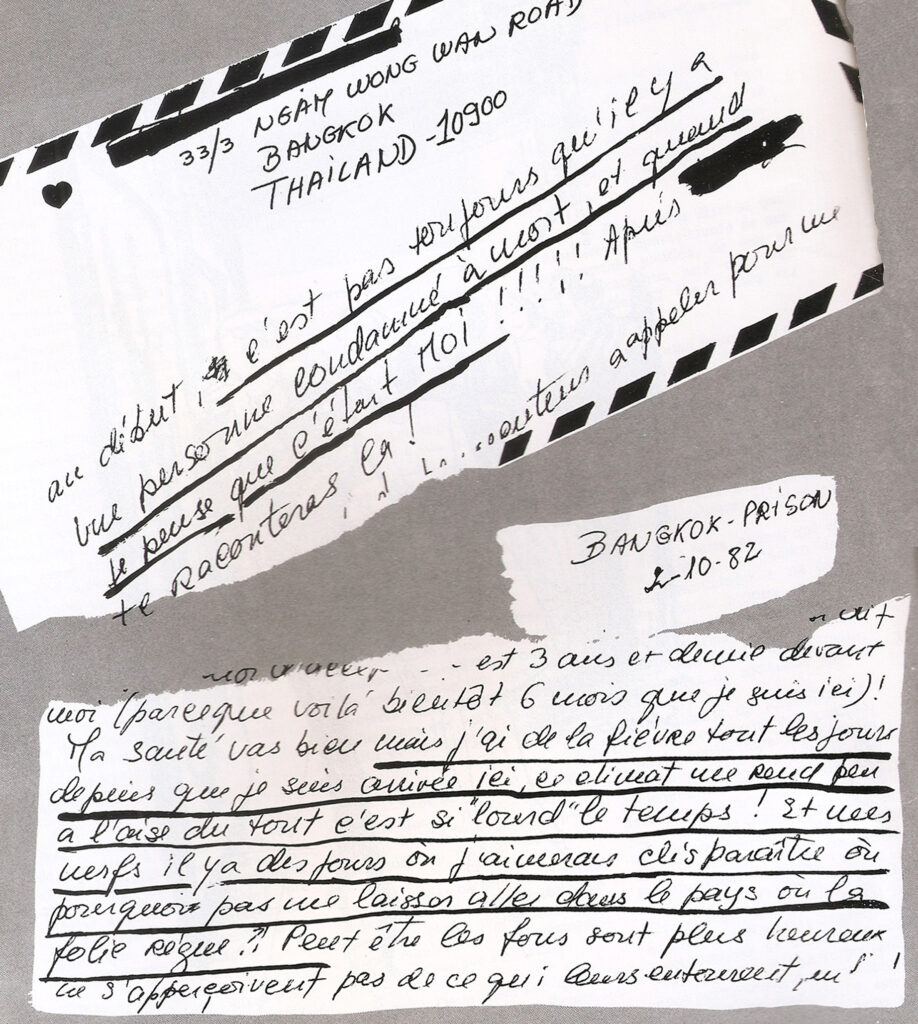 33/3 NGAM WONG WAN ROAD
BANGKOK
THAILAND-10900
au début, c'est pas toujours qu'il y a
une personne condamné à mort, et quand
je pense que c'était MOI!!!!!! Après
te raconteras ça!
appeler pour me
BANGKOK-PRISON
2-10-82
est 3 ans et demie devant
moi (parceque voilà bientôt 6 mois que je suis ici)!
Ma santé vas bien mais j'ai de la fièvre tout les jours
depuis que je suis arrivée ici, ce climat me rend peu
a l'aise du tout c'est si "lourd" le temps! Et mes
nerfs il y a des jours où j'aimerais disparaître où
pourquoi pas me laisser aller dans le pays où la
folie règne?! Peut être les fous sont plus heureux
ne s'apperçoivent pas de ce qui leurs entourent,